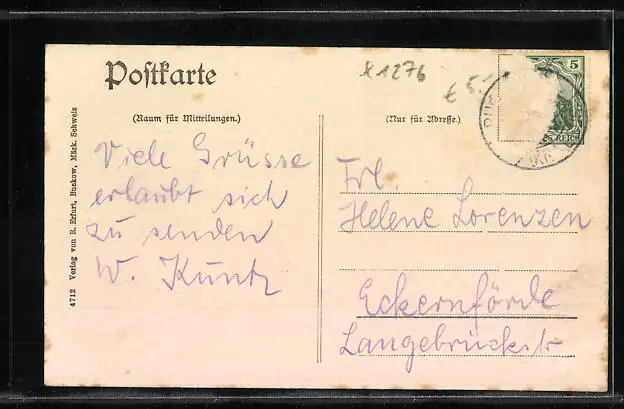 Postkarte
(Raum für Mitteilungen.)
(Nur für Adresse.)
x1276
€ 5.
5
REICH
4712 Verlag von R. Erfurt, Buckow, Märk. Schweiz
Viele Grüsse
erlaubt sich
zu senden
W. Kuntz
Frl.
Helene Lorenzen
Eckernförde
Langebrückstr